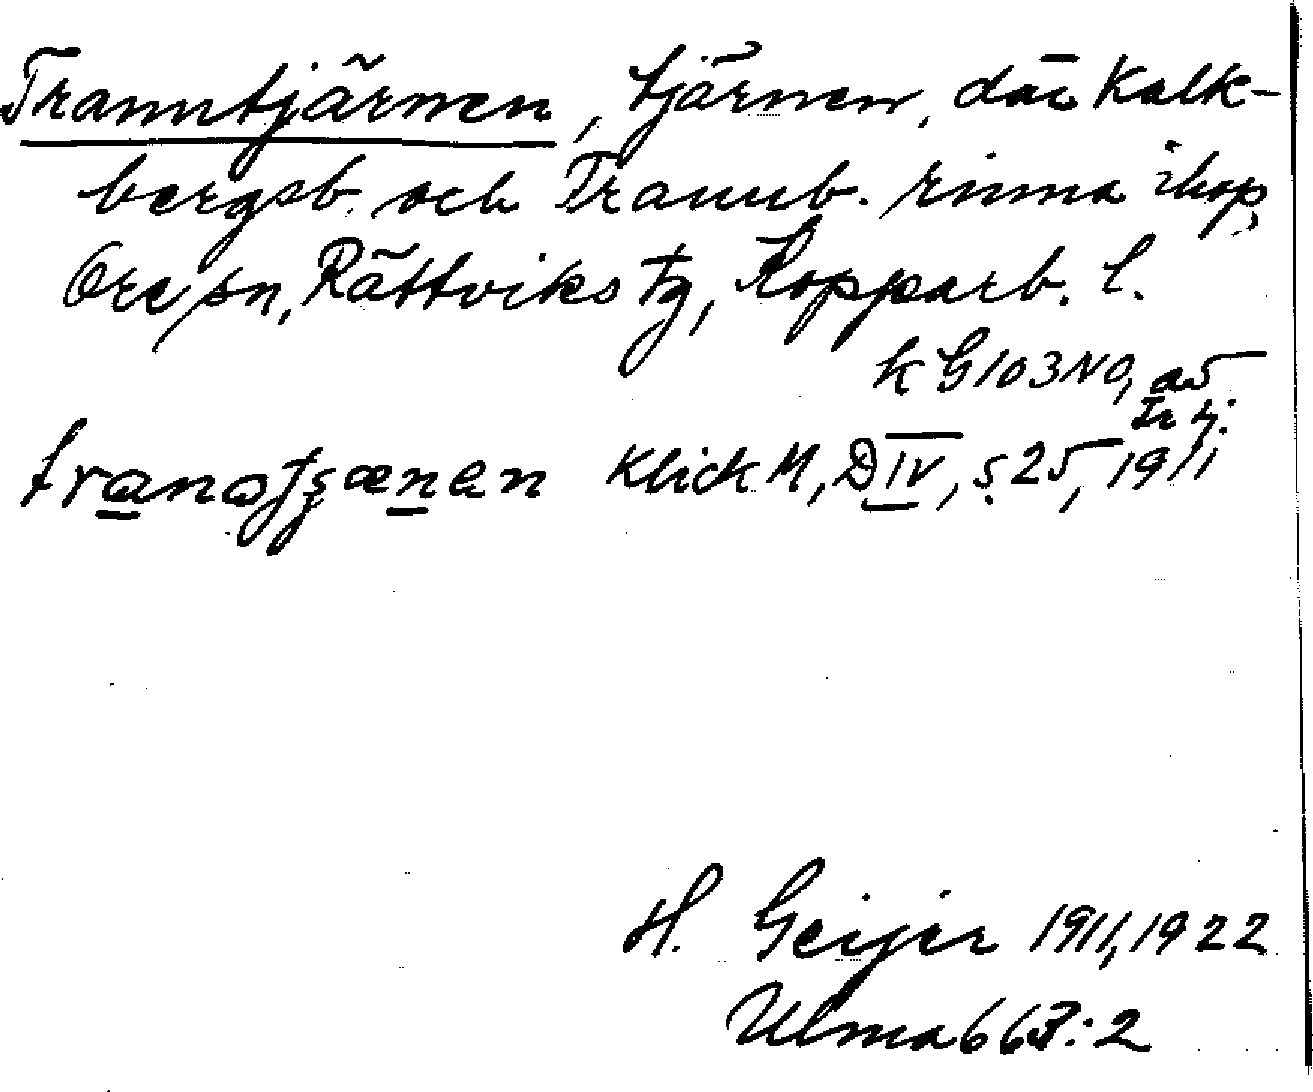 Tranntjärnen, tjärnen, där Kalk-
bergsb. och Trannb. rinna ihop,
Ore sn, Rättviks tg, Kopparb. l.
k G 103 NO, a5
Tr tj.
Klick M, D IV, s 25, 1911
H. Geijer 1911, 1922
Ulma 663:2